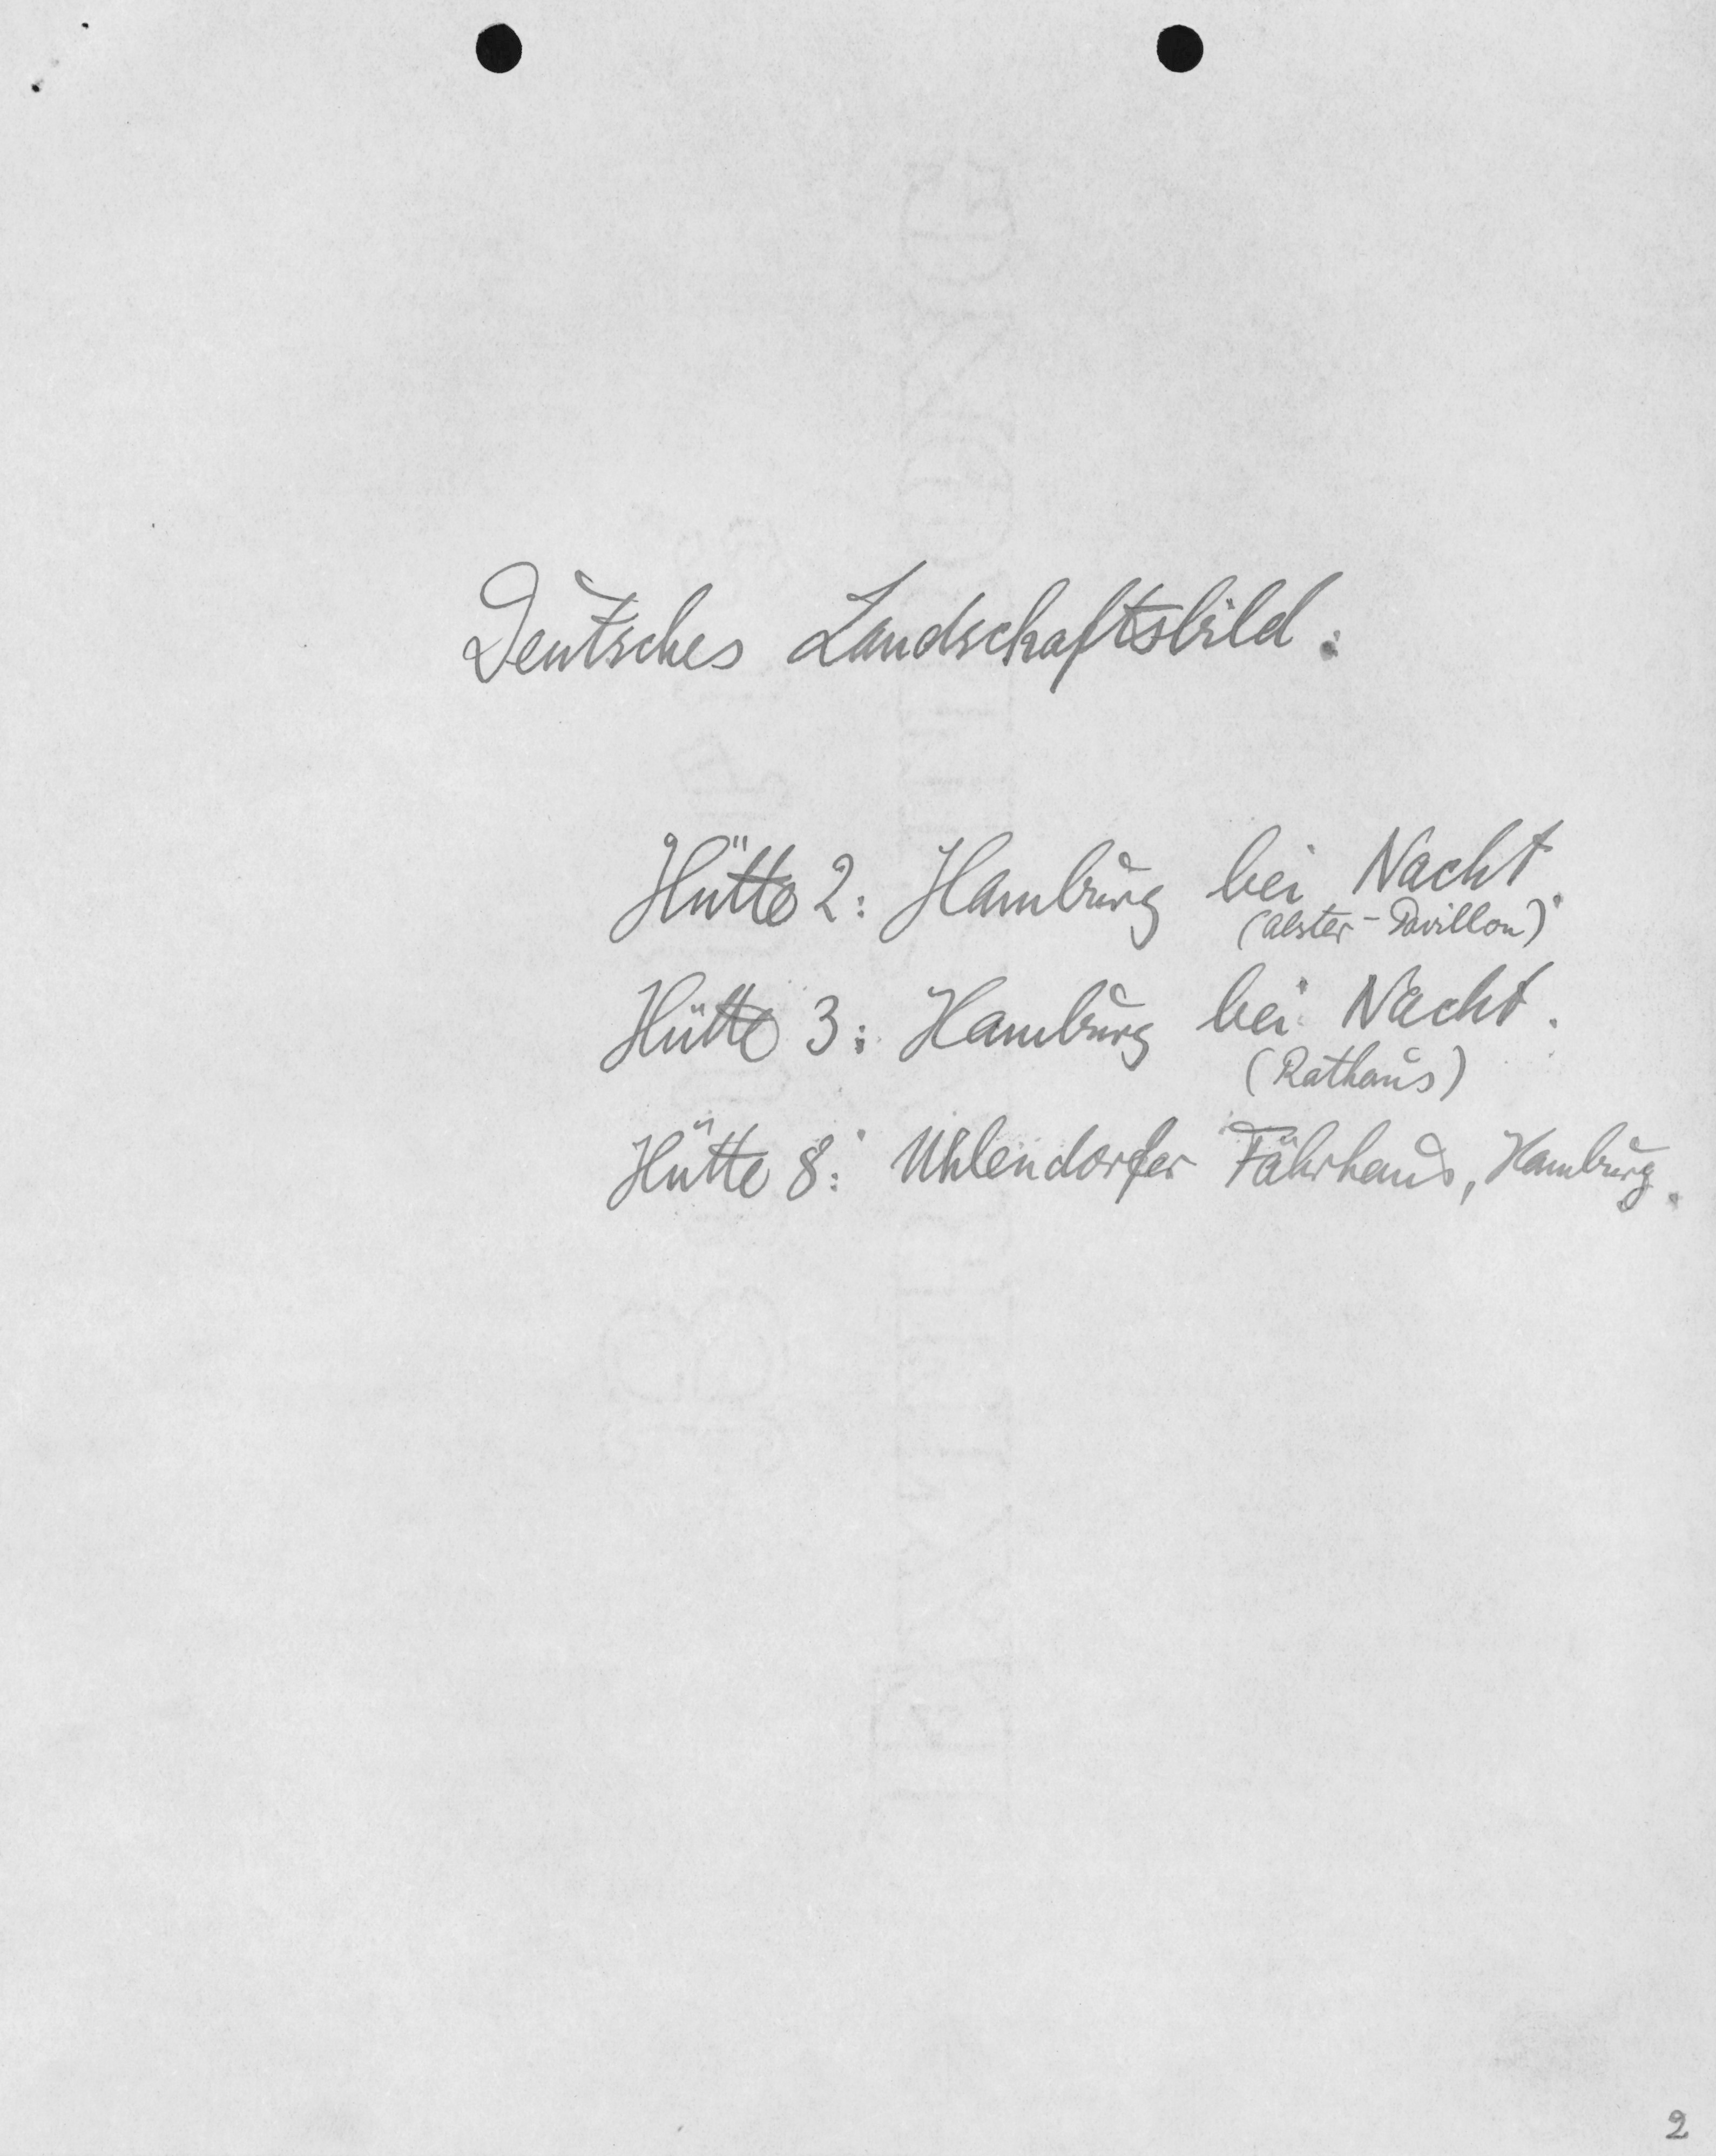 Deutsches Landschaftsbild:
Hütte 2: Hamburg bei Nacht.
(Alster-Pavillon)
Hütte 3: Hamburg bei Nacht.
(Rathaus)
Hütte 8: Uhlendorfer Fährhaus, Hamburg.
2